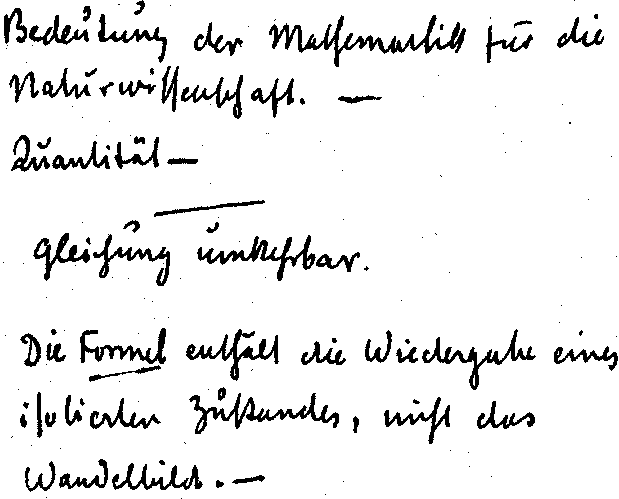 Bedeutung der Mathematik für die
Naturwissenschaft. —
Quantität —
Gleichung umkehrbar.
Die Formel enthält die Wiedergabe eines
isolierten Zustandes, nicht das
Wandelbild. —